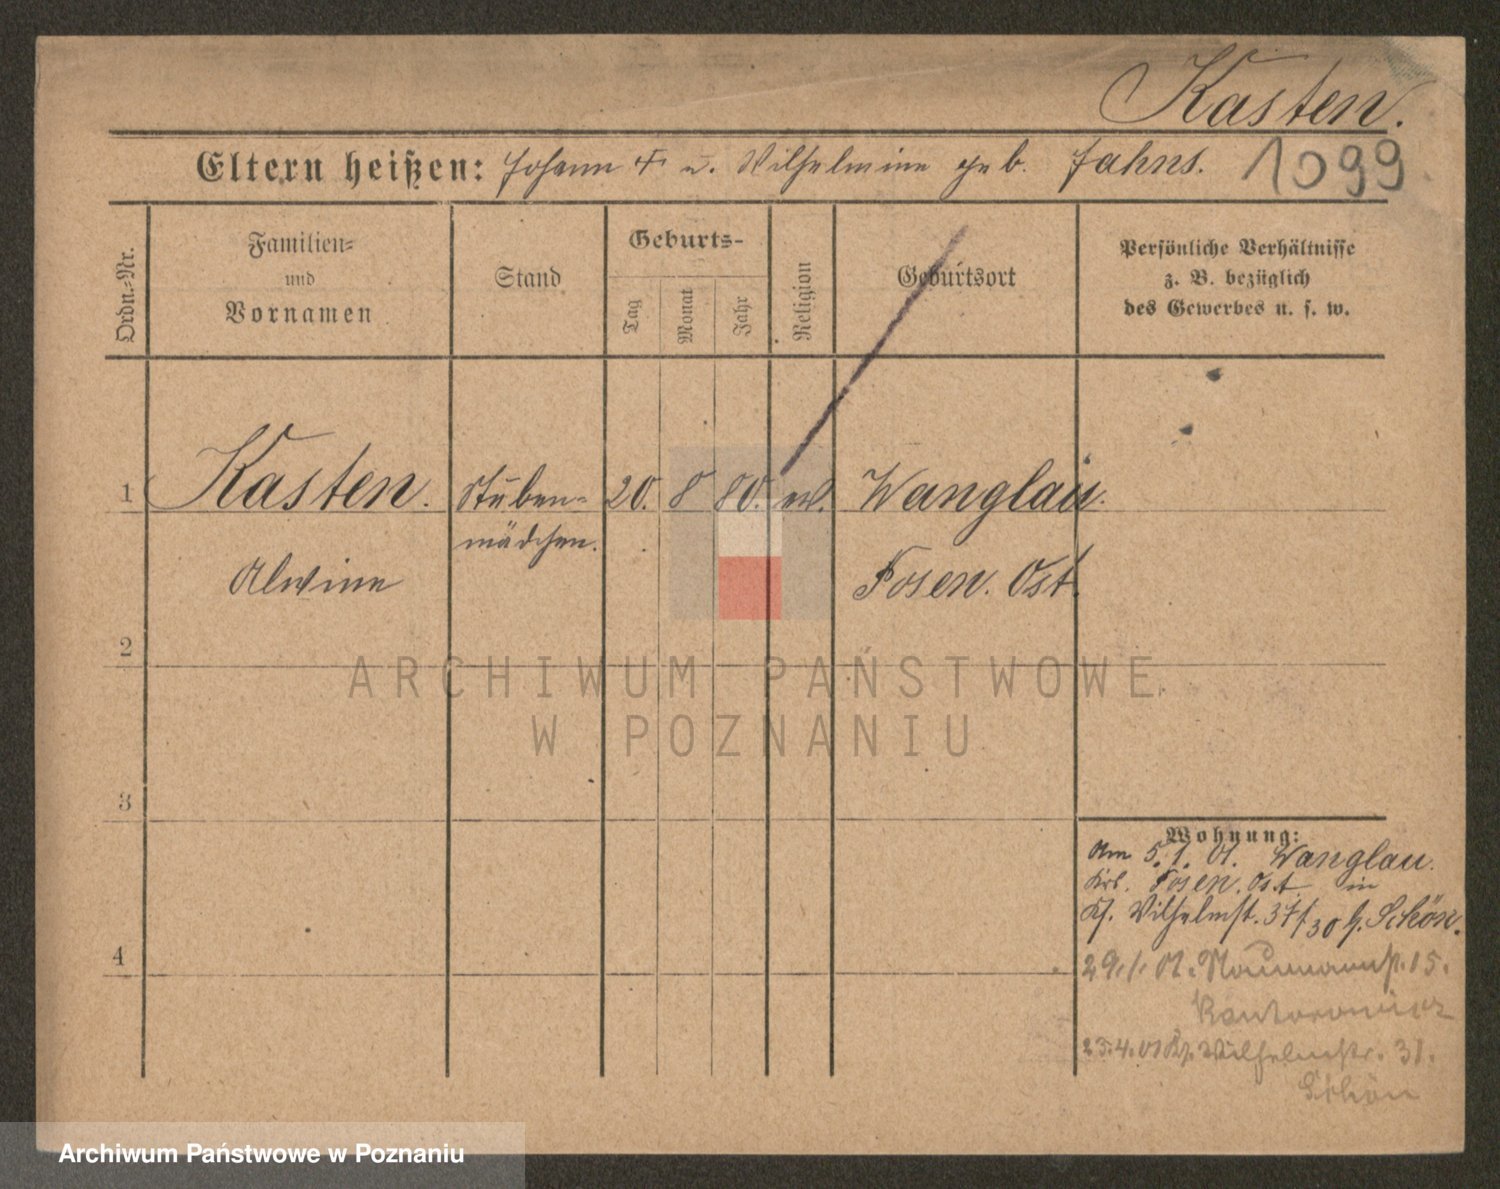 Kasten.
Eltern heißen: Johann † u. Wilhelmine geb. Jahns. 1099
Ordn.-Nr.
Familien-
und
Vornamen
Stand
Geburts-
Tag
Monat
Jahr
Religion
Geburtsort
Persönliche Verhältnisse
z. B. bezüglich
des Gewerbes u. s. w.
1 Kasten. Stuben- 20. 8 80. ev. Wanglau.
mädchen.
Alwine Posen. Ost.
2
3
4
Wohnung:
Am 5.1.01. Wanglau.
Posen. Ost. in
Wilhelmst. 37/30 b. Schön.
29.1.01. Naumannst. 15.
Kantorowicz
25.4.01 Wilhelmstr. 31.
Schön
ARCHIWUM PAŃSTWOWE
W POZNANIU
Archiwum Państwowe w Poznaniu